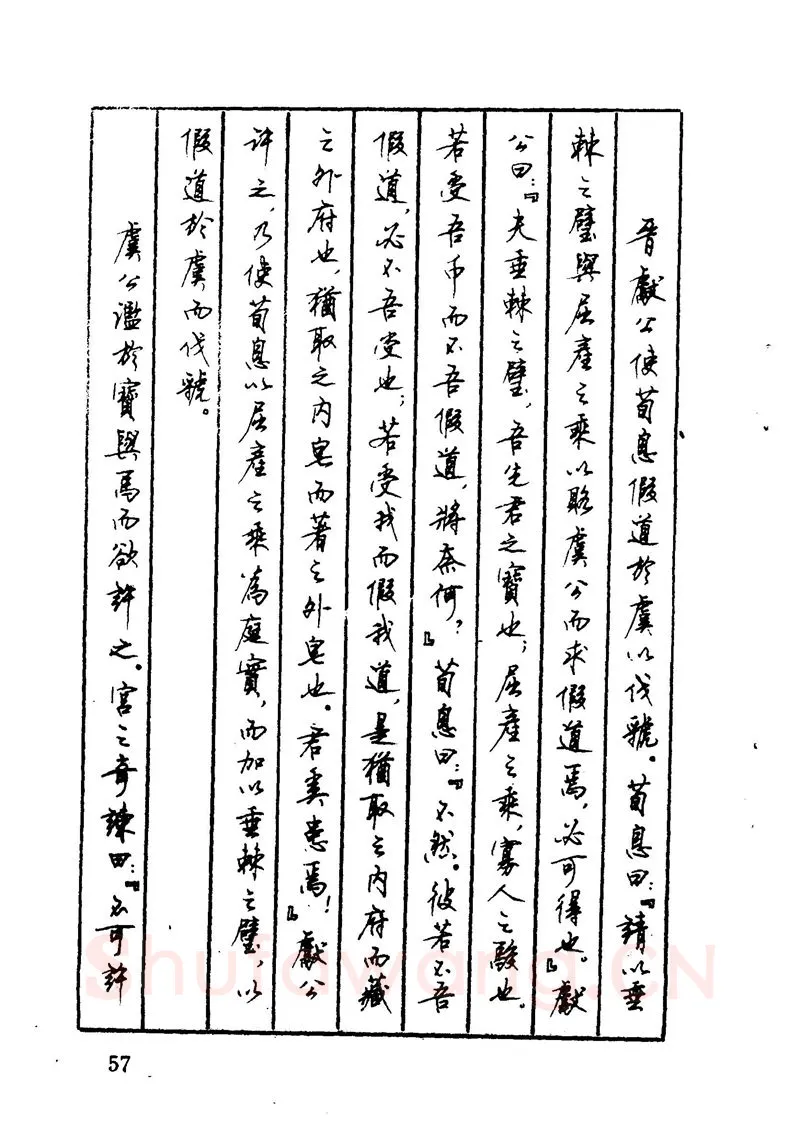 晉獻公使荀息假道於虞以伐虢。荀息曰：『請以垂
棘之璧與屈產之乘以賂虞公而求假道焉，必可得也。』獻
公曰：『夫垂棘之璧，吾先君之寶也；屈產之乘，寡人之駿也。
若受吾币而不吾假道，將奈何？』荀息曰：『不然。彼若不吾
假道，必不吾受也；若受我而假我道，是猶取之内府而藏
之外府也，猶取之内皂而著之外皂也。君奚患焉！』獻公
許之，乃使荀息以屈產之乘為庭實，而加以垂棘之璧，以
假道於虞而伐虢。
虞公濫於寶與馬而欲許之。宮之奇諫曰：『不可許
57
Shufawang.CN